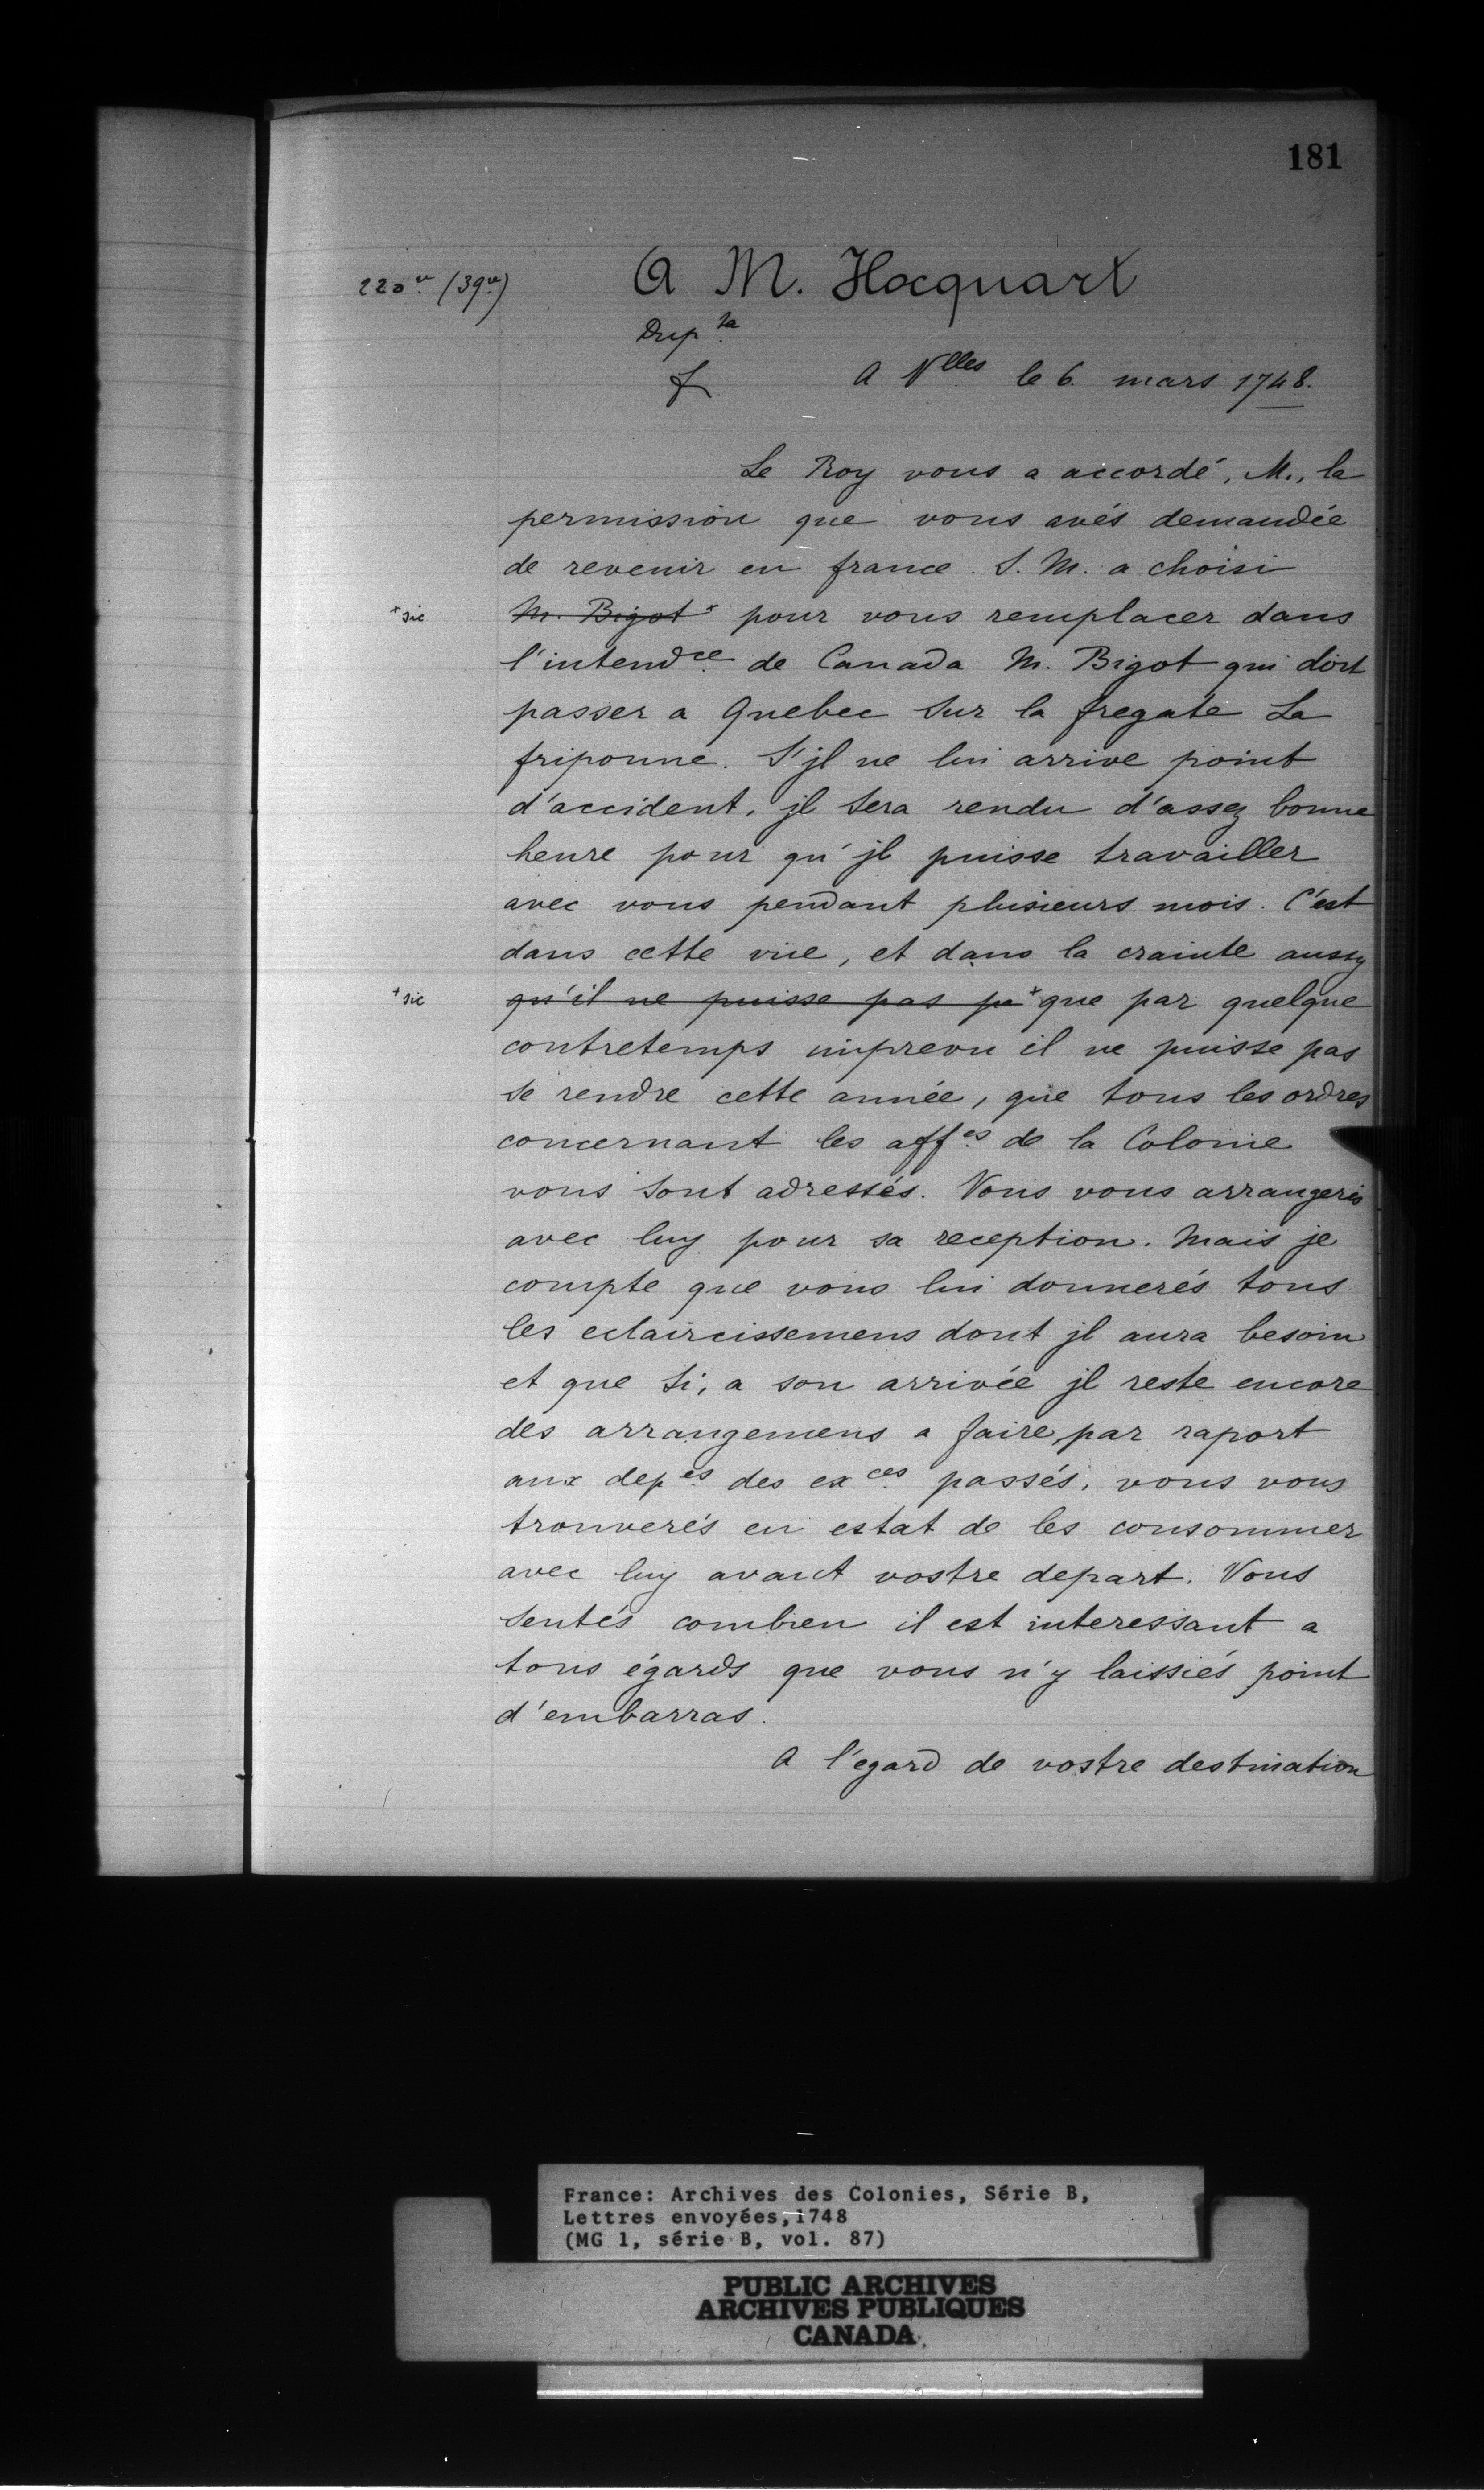 181
220ᵛᵉ (39ᵛᵉ) A M. Hocquart
Dup.ta
A Nlles le 6 mars 1748.
Le Roy vous a accordé, M., la
permission que vous avés demandée
de revenir en france. S. M. a choisi
+sic M. Bigot+ pour vous remplacer dans
l'intendce de Canada M. Bigot qui doit
passer a Quebec sur la fregate La
friponne. S'jl ne lui arrive point
d'accident, jl sera rendu d'assez bonne
heure pour qu'jl puisse travailler
avec vous pendant plusieurs mois. C'est
dans cette vüe, et dans la crainte aussy
+sic qu'il ne puisse pas pa+ que par quelque
contretemps imprevu il ne puisse pas
se rendre cette année, que tous les ordres
concernant les aff.es de la Colonie
vous sont adressés. Vous vous arrangerés
avec luy pour sa reception. Mais je
compte que vous lui donnerés tous
les eclaircissemens dont jl aura besoin
et que si, a son arrivée jl reste encore
des arrangemens a faire par raport
aux dep.es des ex.ces passés, vous vous
trouverés en estat de les consommer
avec luy avant vostre depart. Vous
sentés combien il est interessant a
tous égards que vous n'y laissiés point
d'embarras.
A l'egard de vostre destination
France: Archives des Colonies, Série B,
Lettres envoyées, 1748
(MG 1, série B, vol. 87)
PUBLIC ARCHIVES
ARCHIVES PUBLIQUES
CANADA